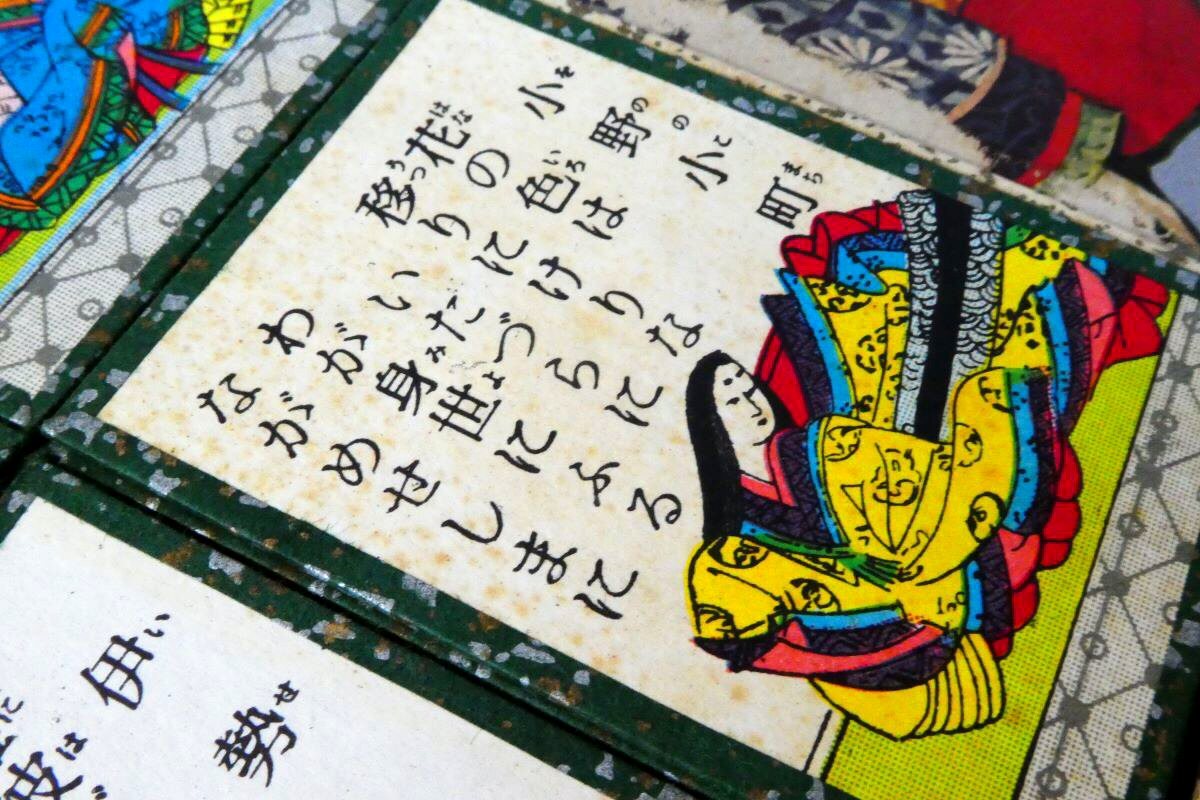 小野の小町
花の色は
移りにけりな
いたづらに
わが身世にふる
ながめせしまに
伊勢